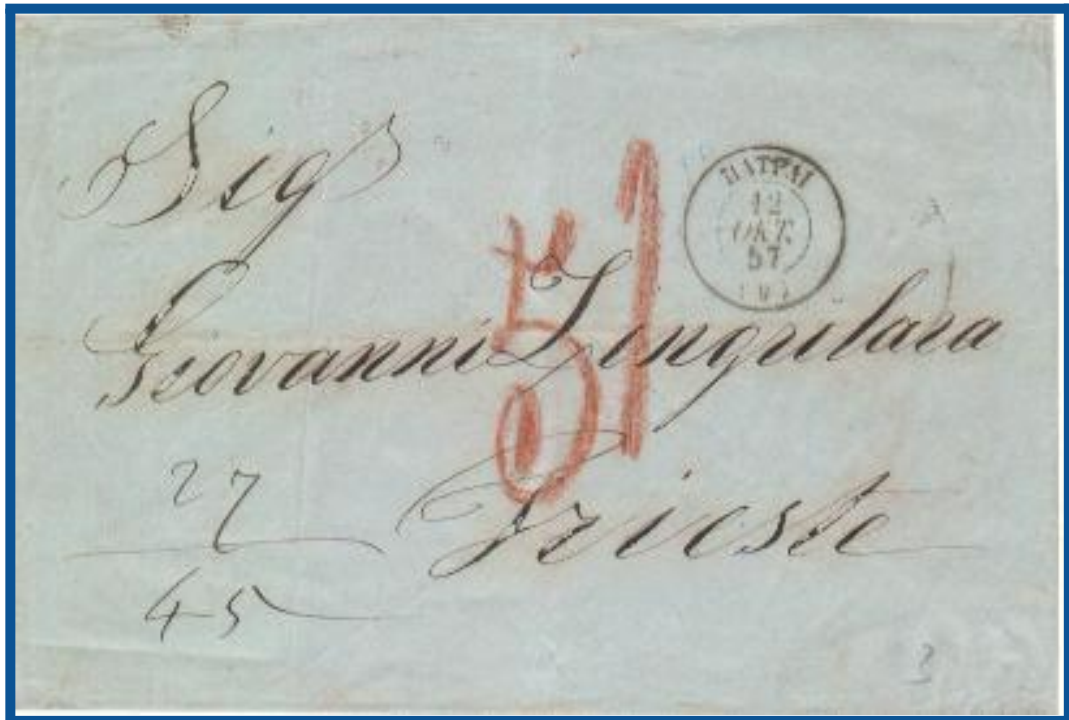 Sigr
ΠΑΤΡΑΙ
12
ΟΚΤ.
57
Giovanni Zingulara
51
27
45
Trieste